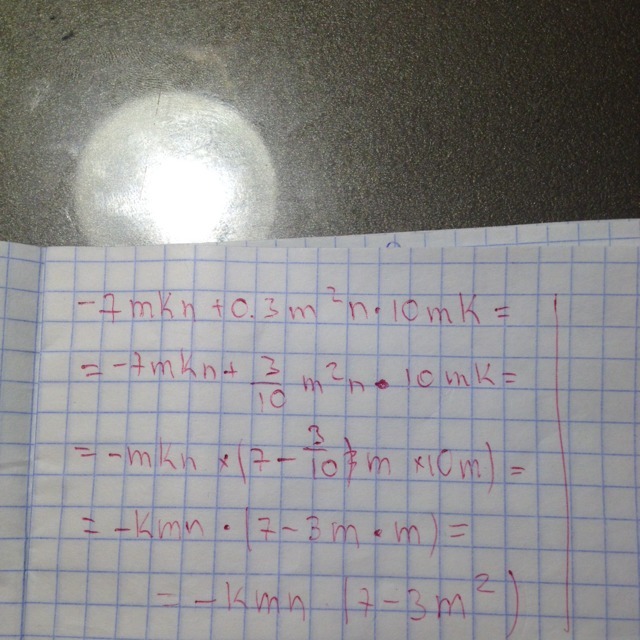 -7mkn+0.3m²n·10mk=
=-7mkn+3/10 m²n·10mk=
=-mkn×(7-3/10 m×10m)=
=-kmn·(7-3m·m)=
=-kmn(7-3m²)